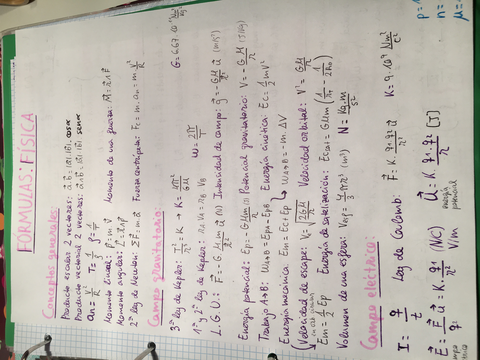 FORMULAS: FÍSICA
Conceptos generales:
Producto escalar 2 vectores: a⃗·b⃗ = |a⃗|·|b⃗|· cosα
Producto vectorial 2 vectores: a⃗∧b⃗ = |a⃗|·|b⃗|· senα
an = v²/R T = 1/f
Momento lineal: p⃗ = m·v⃗ Momento de una fuerza: M⃗ = r⃗∧F⃗
Momento angular: L⃗ = r⃗∧p⃗
2ª ley de Newton: ΣF⃗ = m·a⃗ Fuerza centrípeta: Fc = m·an = m v²/R
Campo gravitatorio:
3ª ley de Kepler: T²/r³ = K → K = 4π²/GM ω = 2π/T G = 6,67·10⁻¹¹ Nm²/kg²
1ª y 2ª ley de Kepler: rA VA = rB VB
L.G.U: F⃗ = -G·M·m/r² u⃗ (N) Intensidad de campo: g⃗ = -GM/r² u⃗ (m/s²)
Energía potencial: Ep = -GMm/r (J) Potencial gravitatorio: V = -GM/r (J/kg)
Trabajo A→B: WA→B = EpA - EpB Energía cinética: Ec = 1/2 mV²
Energía mecánica: Em = Ec + Ep → WA→B = -m·ΔV
Velocidad de escape: Ve = √2GM/r Velocidad orbital: V² = GM/r
Em = 1/2 Ep Energía de satelización: Esat = GMm (1/RT - 1/2r0)
Volumen de una esfera: Vesf = 4/3 πr³ (m³) N = kg·m/s²
Campo eléctrico:
I = q/t Ley de Coulomb: F⃗ = K·q1·q2/r² u⃗ K = 9·10⁹ Nm²/C²
E⃗ = F⃗/q2 u⃗ = K·q1/r² (N/C) V/m U = K·q1·q2/r [J]
energía potencial